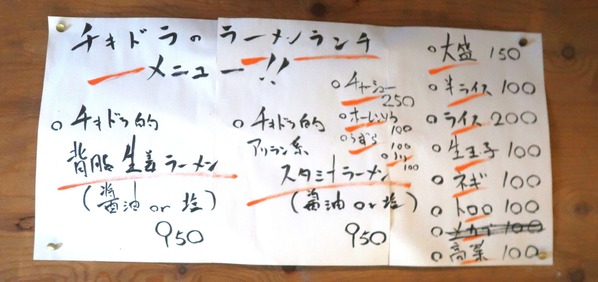 チキドラのラーメンランチ
メニュー!!
○チキドラ的
背脂生姜ラーメン
(醤油 or 塩)
950
○チャーシュー
250
○ホーレンソウ
100
○うずら 100
○ノリ 100
○チキドラ的
アリラン系
スタミナラーメン
(醤油 or 塩)
950
○大盛 150
○半ライス 100
○ライス 200
○生玉子 100
○ネギ 100
○トロロ 100
○メカブ 100
○高菜 100